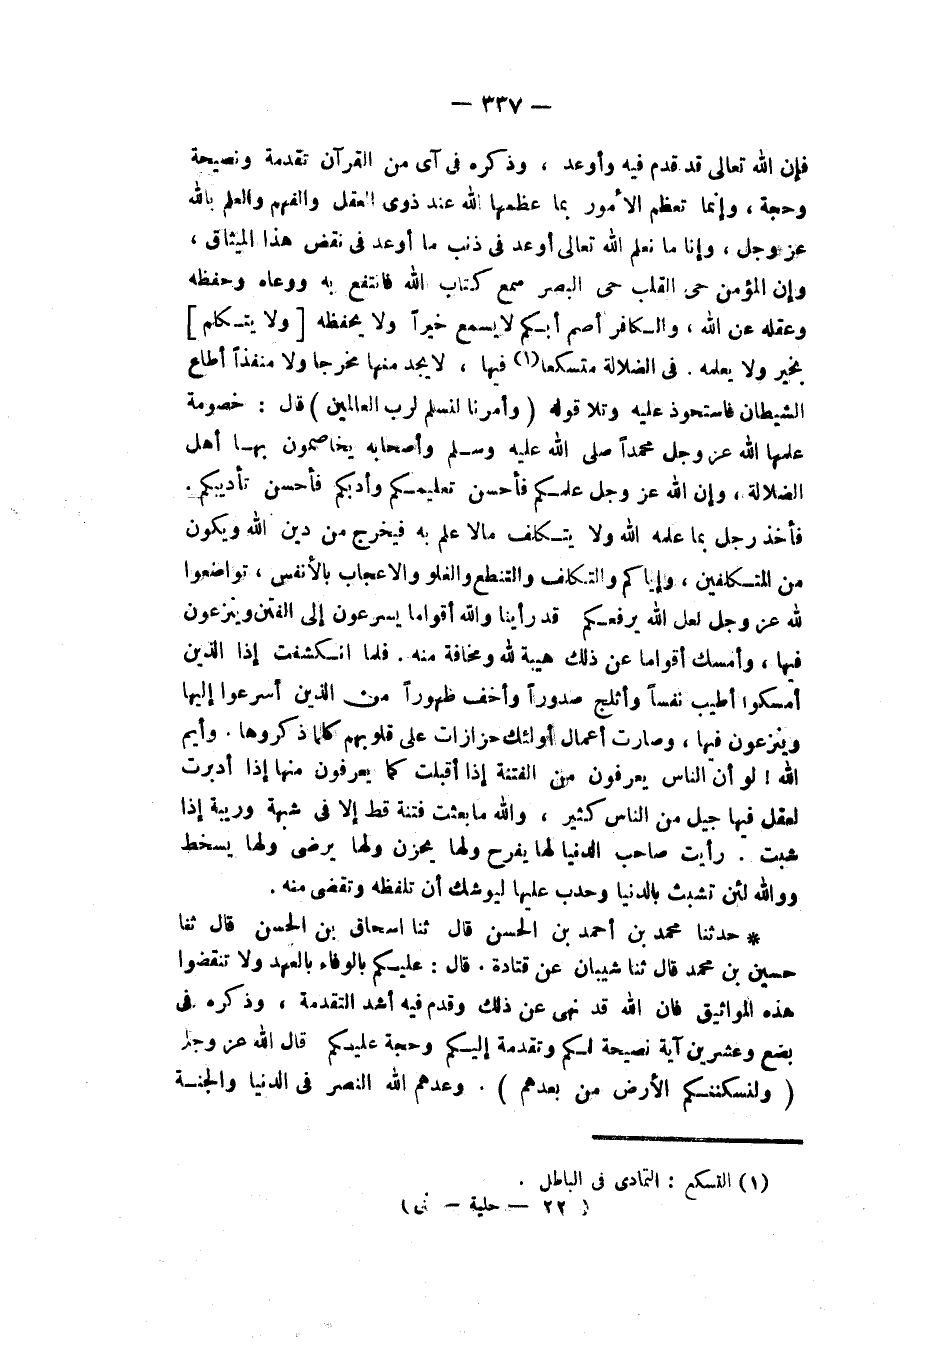 — ٣٣٧ —
فإن الله تعالى قد قدم فيه وأوعد ، وذكره فى آى من القرآن تقدمة ونصيحة
وحجة ، وإنما تعظم الأمور بما عظمها الله عند ذوى العقل والفهم والعلم بالله
عز وجل ، وإنا ما نعلم الله تعالى أوعد فى ذنب ما أوعد فى نقض هذا الميثاق ،
وإن المؤمن حى القلب حى البصر سمع كتاب الله فانتفع به ووعاه وحفظه
وعقله عن الله ، والكافر أصم أبكم لايسمع خيراً ولا يحفظه [ ولا يتكلم ]
بخير ولا يعلمه . فى الضلالة متسكعا (١) فيها ، لايجد منها مخرجا ولا منفذاً أطاع
الشيطان فاستحوذ عليه وتلا قوله ( وأمرنا لنسلم لرب العالمين ) قال : خصومة
علمها الله عز وجل محمداً صلى الله عليه وسلم وأصحابه يخاصمون بها أهل
الضلالة ، وإن الله عز وجل علمكم فأحسن تعليمكم وأدبكم فأحسن تأديبكم .
فأخذ رجل بما علمه الله ولا يتكلف مالا علم به فيخرج من دين الله ويكون
من المتكلفين ، وإياكم والتكلف والتنطع والغلو والاعجاب بالأنفس ، تواضعوا
لله عز وجل لعل الله يرفعكم قد رأينا والله أقواما يسرعون إلى الفتن وينزعون
فيها ، وأمسك أقواما عن ذلك هيبة لله ومخافة منه . فلما انكشفت إذا الذين
أمسكوا أطيب نفساً وأثلج صدوراً وأخف ظهوراً من الذين أسرعوا إليها
وينزعون فيها ، وصارت أعمال أولئك حزازات على قلوبهم كلما ذكروها . وأيم
الله ! لو أن الناس يعرفون من الفتنة إذا أقبلت كما يعرفون منها إذا أدبرت
لعقل فيها جيل من الناس كثير ، والله مابعثت فتنة قط إلا فى شبهة وريبة إذا
شبت . رأيت صاحب الدنيا لها يفرح ولها يحزن ولها يرضى ولها يسخط
ووالله لئن تشبث بالدنيا وحدب عليها ليوشك أن تلفظه وتقضى منه .
* حدثنا محمد بن أحمد بن الحسن قال ثنا اسحاق بن الحسن قال ثنا
حسين بن محمد قال ثنا شيبان عن قتادة . قال : عليكم بالوفاء بالعهد ولا تنقضوا
هذه المواثيق فان الله قد نهى عن ذلك وقدم فيه أشد التقدمة ، وذكره فى
بضع وعشرين آية نصيحة لكم وتقدمة إليكم وحجة عليكم قال الله عز وجل
( ولنسكننكم الأرض من بعدهم ) . وعدهم الله النصر فى الدنيا والجنة
(١) التسكع : التمادى فى الباطل .
( ٢٢ — حلية — نى )